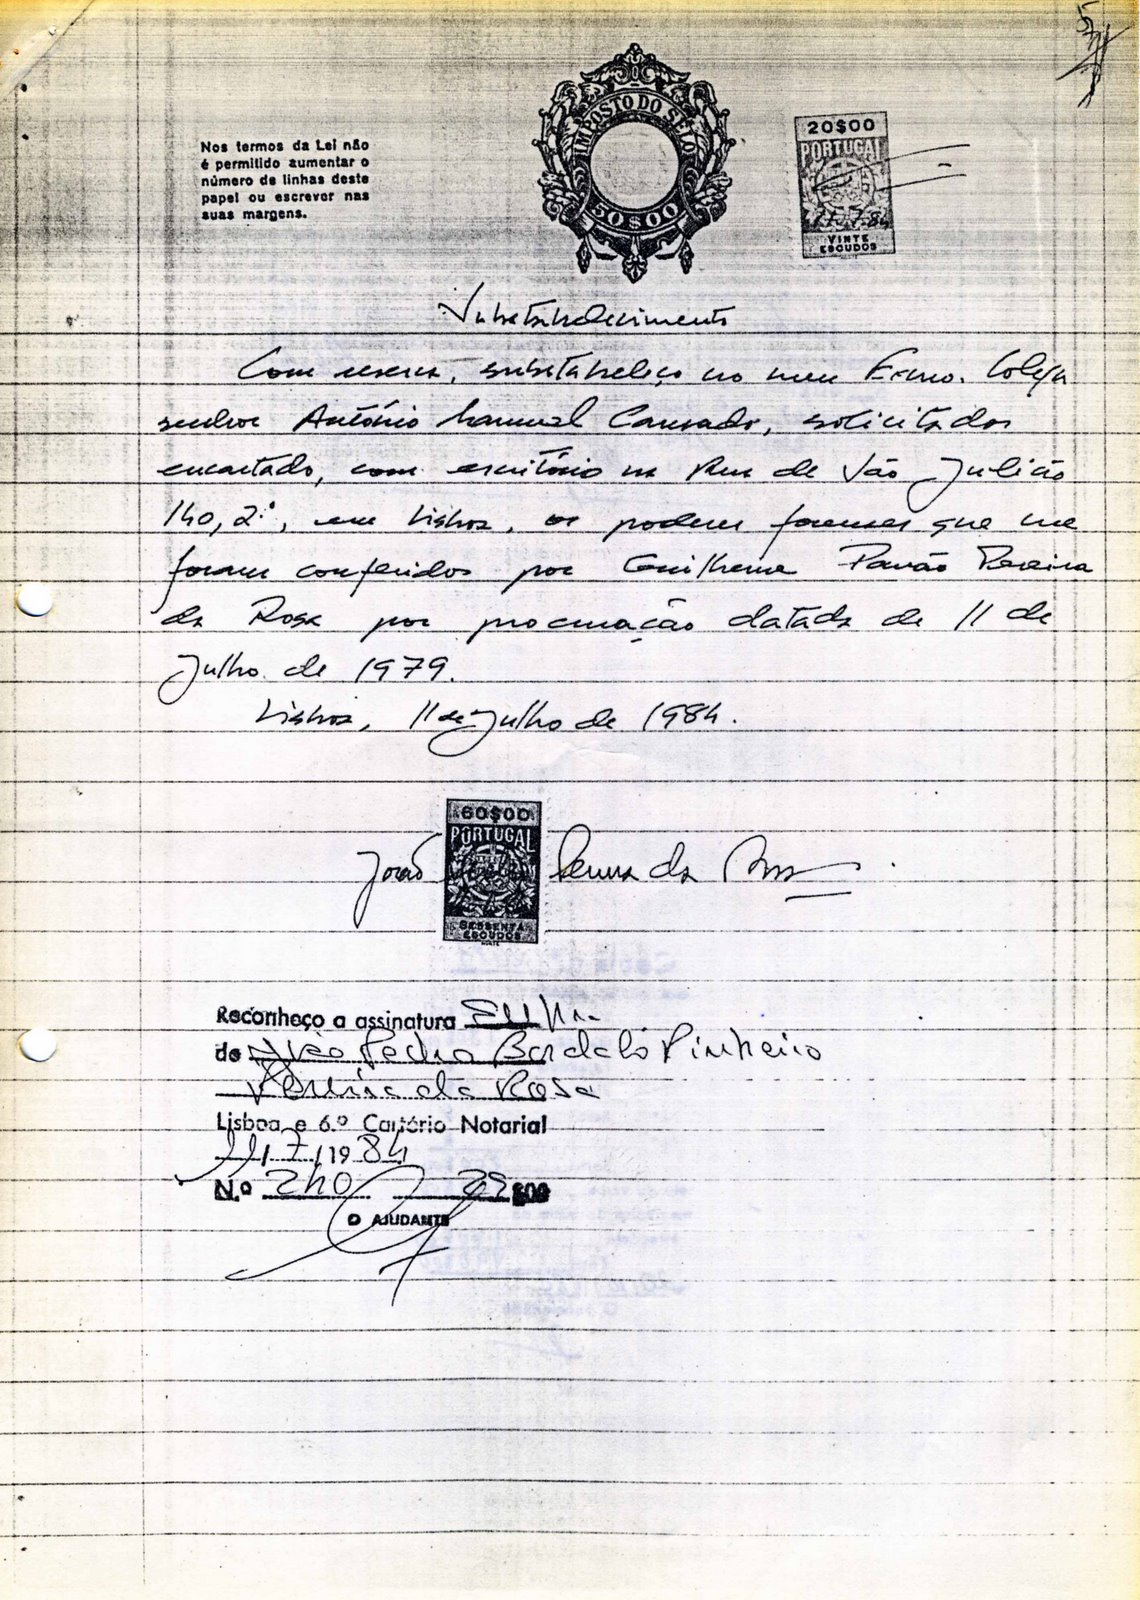 IMPOSTO DO SELO
50$00
Nos termos da Lei não
é permitido aumentar o
número de linhas deste
papel ou escrever nas
suas margens.
20$00
PORTUGAL
11-7-84
VINTE
ESCUDOS
Substabelecimento
Com reserva, substabeleço no meu Exmo. Colega
senhor António Manuel Cansado, solicitador
encartado, com escritório na Rua de São Julião
140, 2.º, em Lisboa, os poderes forenses que me
foram conferidos por Guilherme Pavão Pereira
da Rosa por procuração datada de 11 de
Julho de 1979.
Lisboa, 11 de Julho de 1984.
60$00
PORTUGAL
SESSENTA
ESCUDOS
João Pereira da Rosa
Reconheço a assinatura
de João Pedro Bordalo Pinheiro
Pereira da Rosa
Lisboa e 6.º Cartório Notarial
11/7/1984
N.º 240 39$00
O AJUDANTE